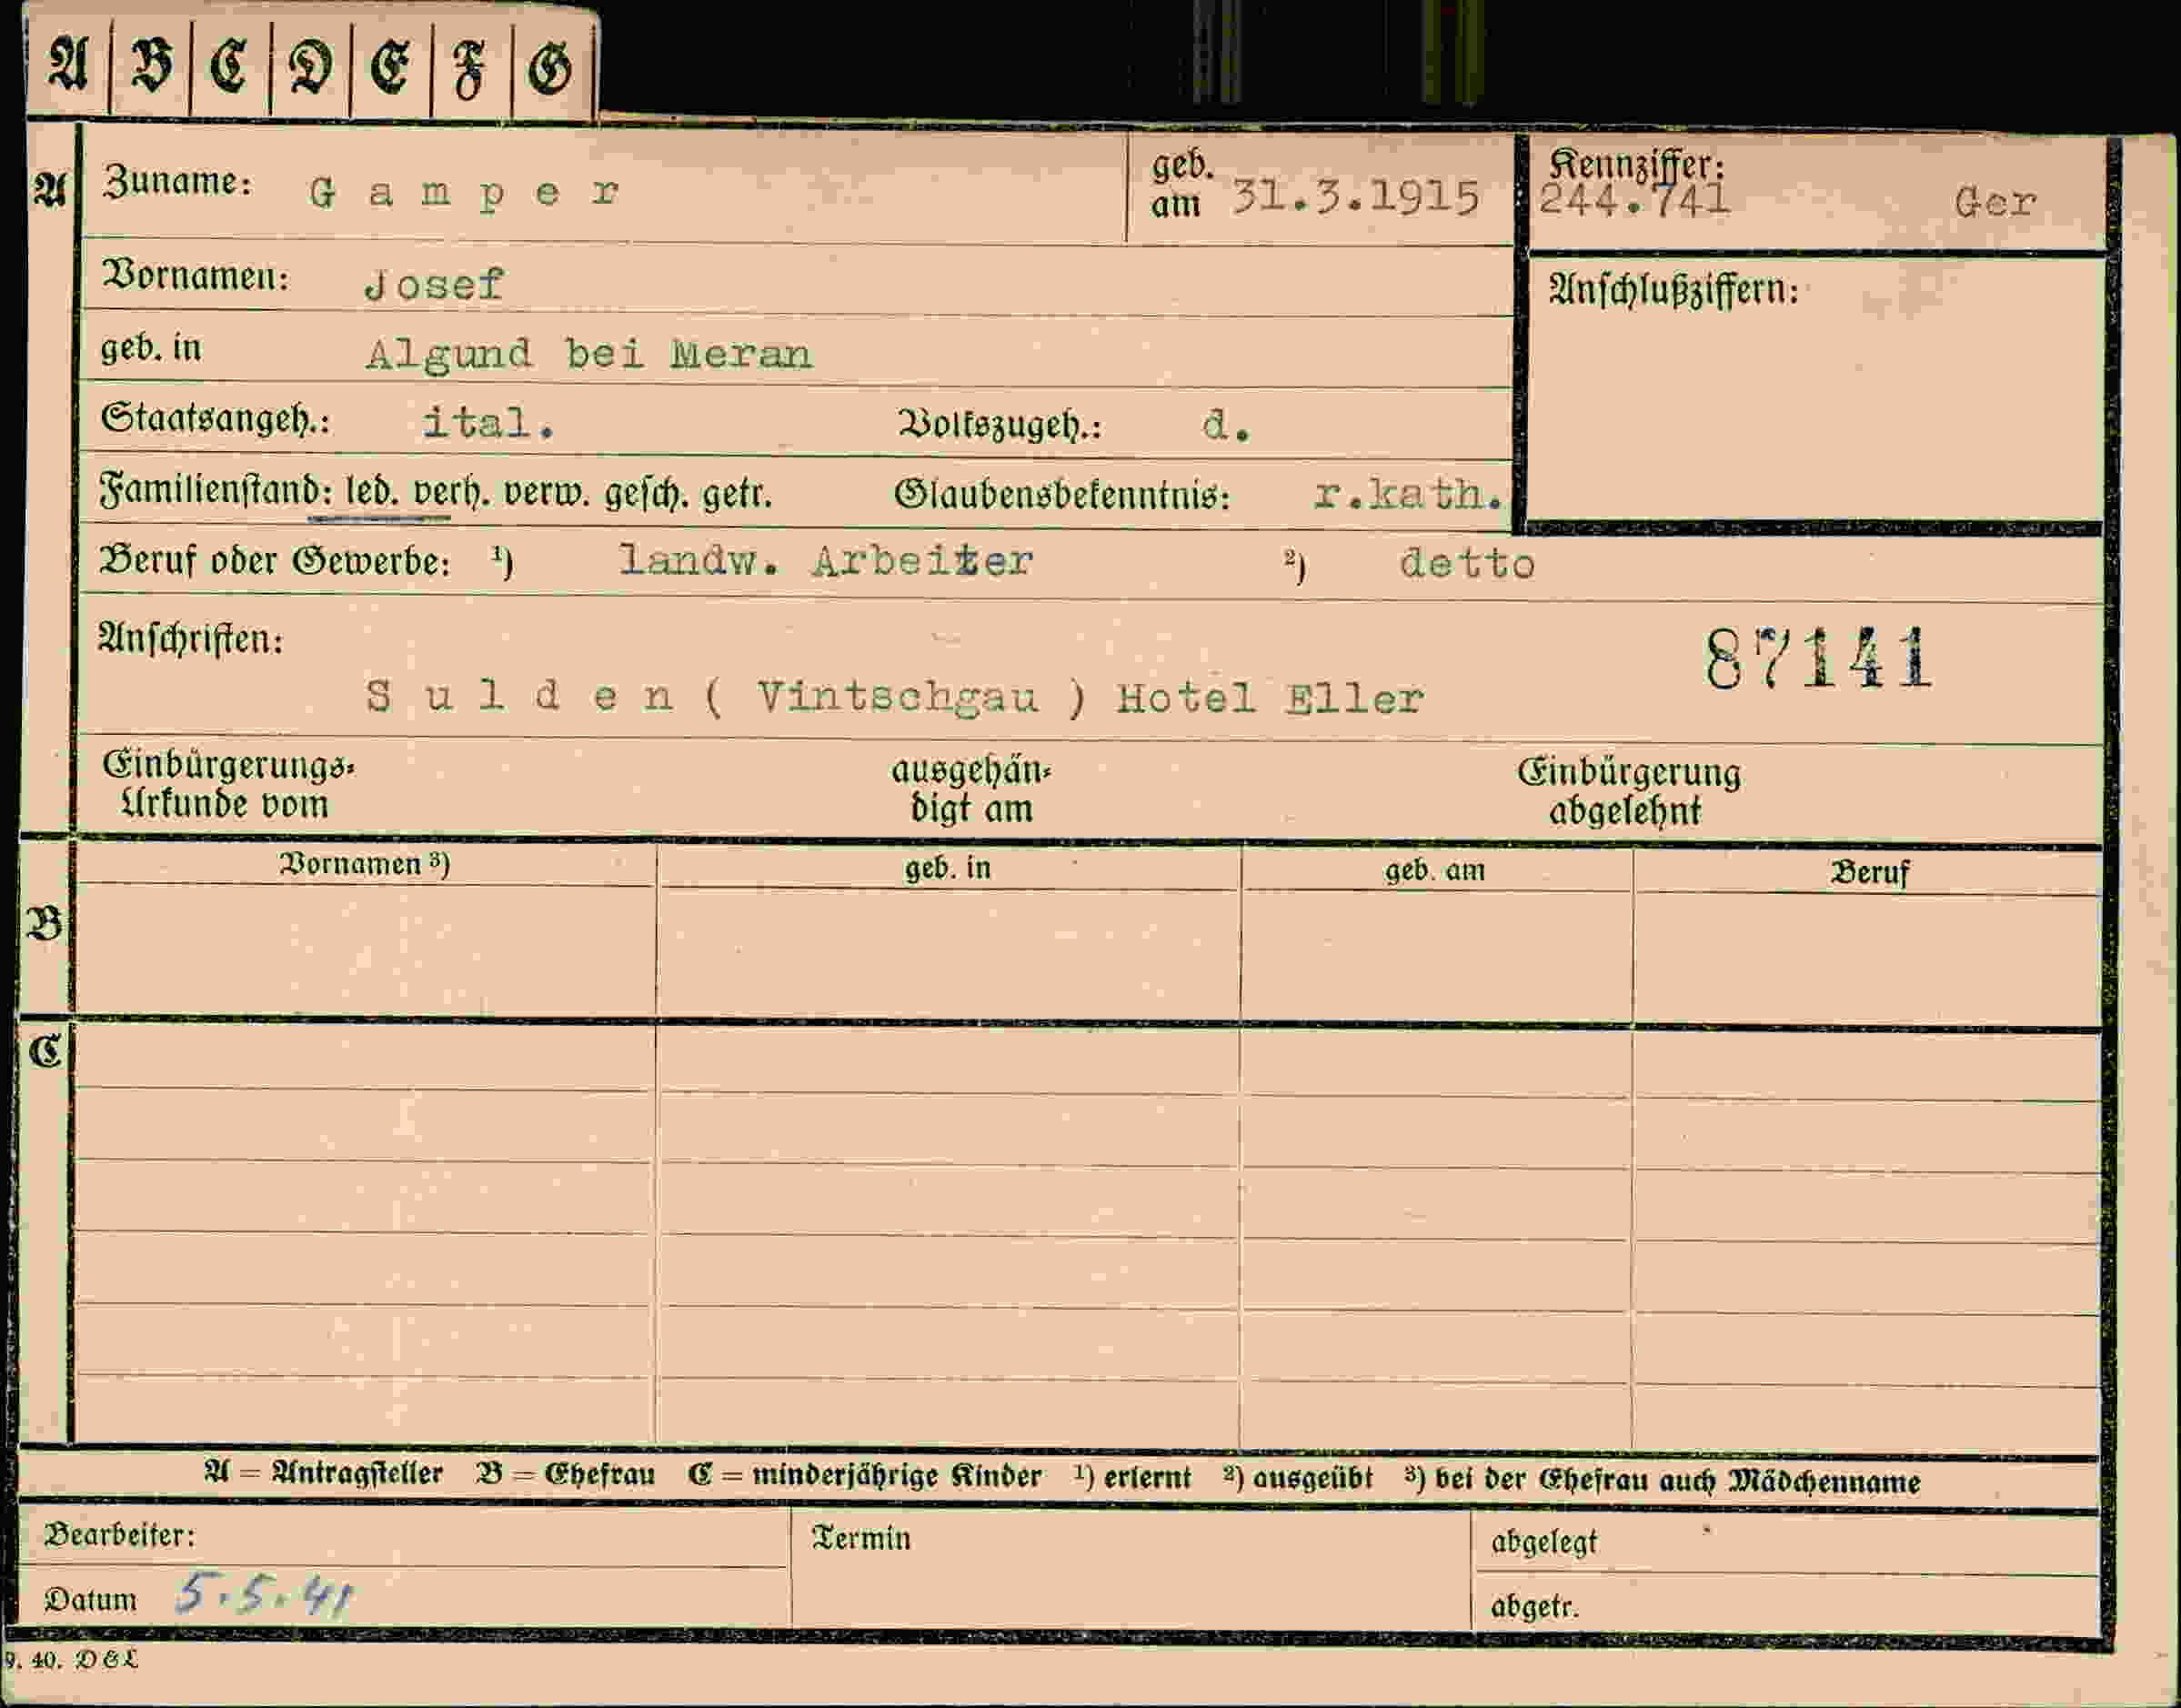 A B C D E F G
A Zuname: G a m p e r geb. am 31.3.1915 Kennziffer: 244.741 Ger
Vornamen: Josef Anschlußziffern:
geb. in Algund bei Meran
Staatsangeh.: ital. Volkszugeh.: d.
Familienstand: led. verh. verw. gesch. getr. Glaubensbekenntnis: r.kath.
Beruf oder Gewerbe: ¹) landw. Arbeiter ²) detto
Anschriften: 87141
S u l d e n ( Vintschgau ) Hotel Eller
Einbürgerungs- ausgehän- Einbürgerung
Urkunde vom digt am abgelehnt
Vornamen ³) geb. in geb. am Beruf
B
C
A = Antragsteller B = Ehefrau C = minderjährige Kinder ¹) erlernt ²) ausgeübt ³) bei der Ehefrau auch Mädchenname
Bearbeiter: Termin abgelegt
Datum 5.5.41 abgetr.
9. 40. D & L